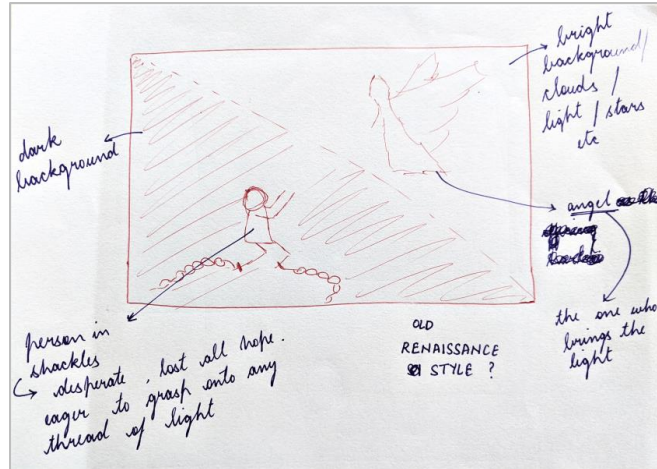 bright
background/
clouds /
light / stars
etc
dark
background
angel
the one who
brings the
light
person in
shackles
desperate, lost all hope.
eager to grasp onto any
thread of light
OLD
RENAISSANCE
STYLE ?